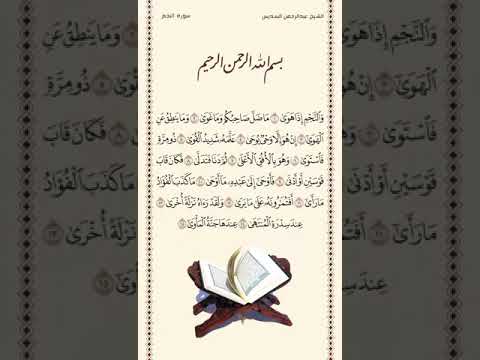 الشيخ عبدالرحمن السديس
سورة النجم
بسم الله الرحمن الرحيم
وَٱلنَّجْمِ إِذَا هَوَىٰ ١ مَا ضَلَّ صَاحِبُكُمْ وَمَا غَوَىٰ ٢ وَمَا يَنطِقُ عَنِ
ٱلْهَوَىٰ ٣ إِنْ هُوَ إِلَّا وَحْىٌ يُوحَىٰ ٤ عَلَّمَهُۥ شَدِيدُ ٱلْقُوَىٰ ٥ ذُو مِرَّةٍ
فَٱسْتَوَىٰ ٦ وَهُوَ بِٱلْأُفُقِ ٱلْأَعْلَىٰ ٧ ثُمَّ دَنَا فَتَدَلَّىٰ ٨ فَكَانَ قَابَ
قَوْسَيْنِ أَوْ أَدْنَىٰ ٩ فَأَوْحَىٰ إِلَىٰ عَبْدِهِۦ مَآ أَوْحَىٰ ١٠ مَا كَذَبَ ٱلْفُؤَادُ
مَا رَأَىٰٓ ١١ أَفَتُمَٰرُونَهُۥ عَلَىٰ مَا يَرَىٰ ١٢ وَلَقَدْ رَءَاهُ نَزْلَةً أُخْرَىٰ ١٣
عِندَ سِدْرَةِ ٱلْمُنتَهَىٰ ١٤ عِندَهَا جَنَّةُ ٱلْمَأْوَىٰ ١٥